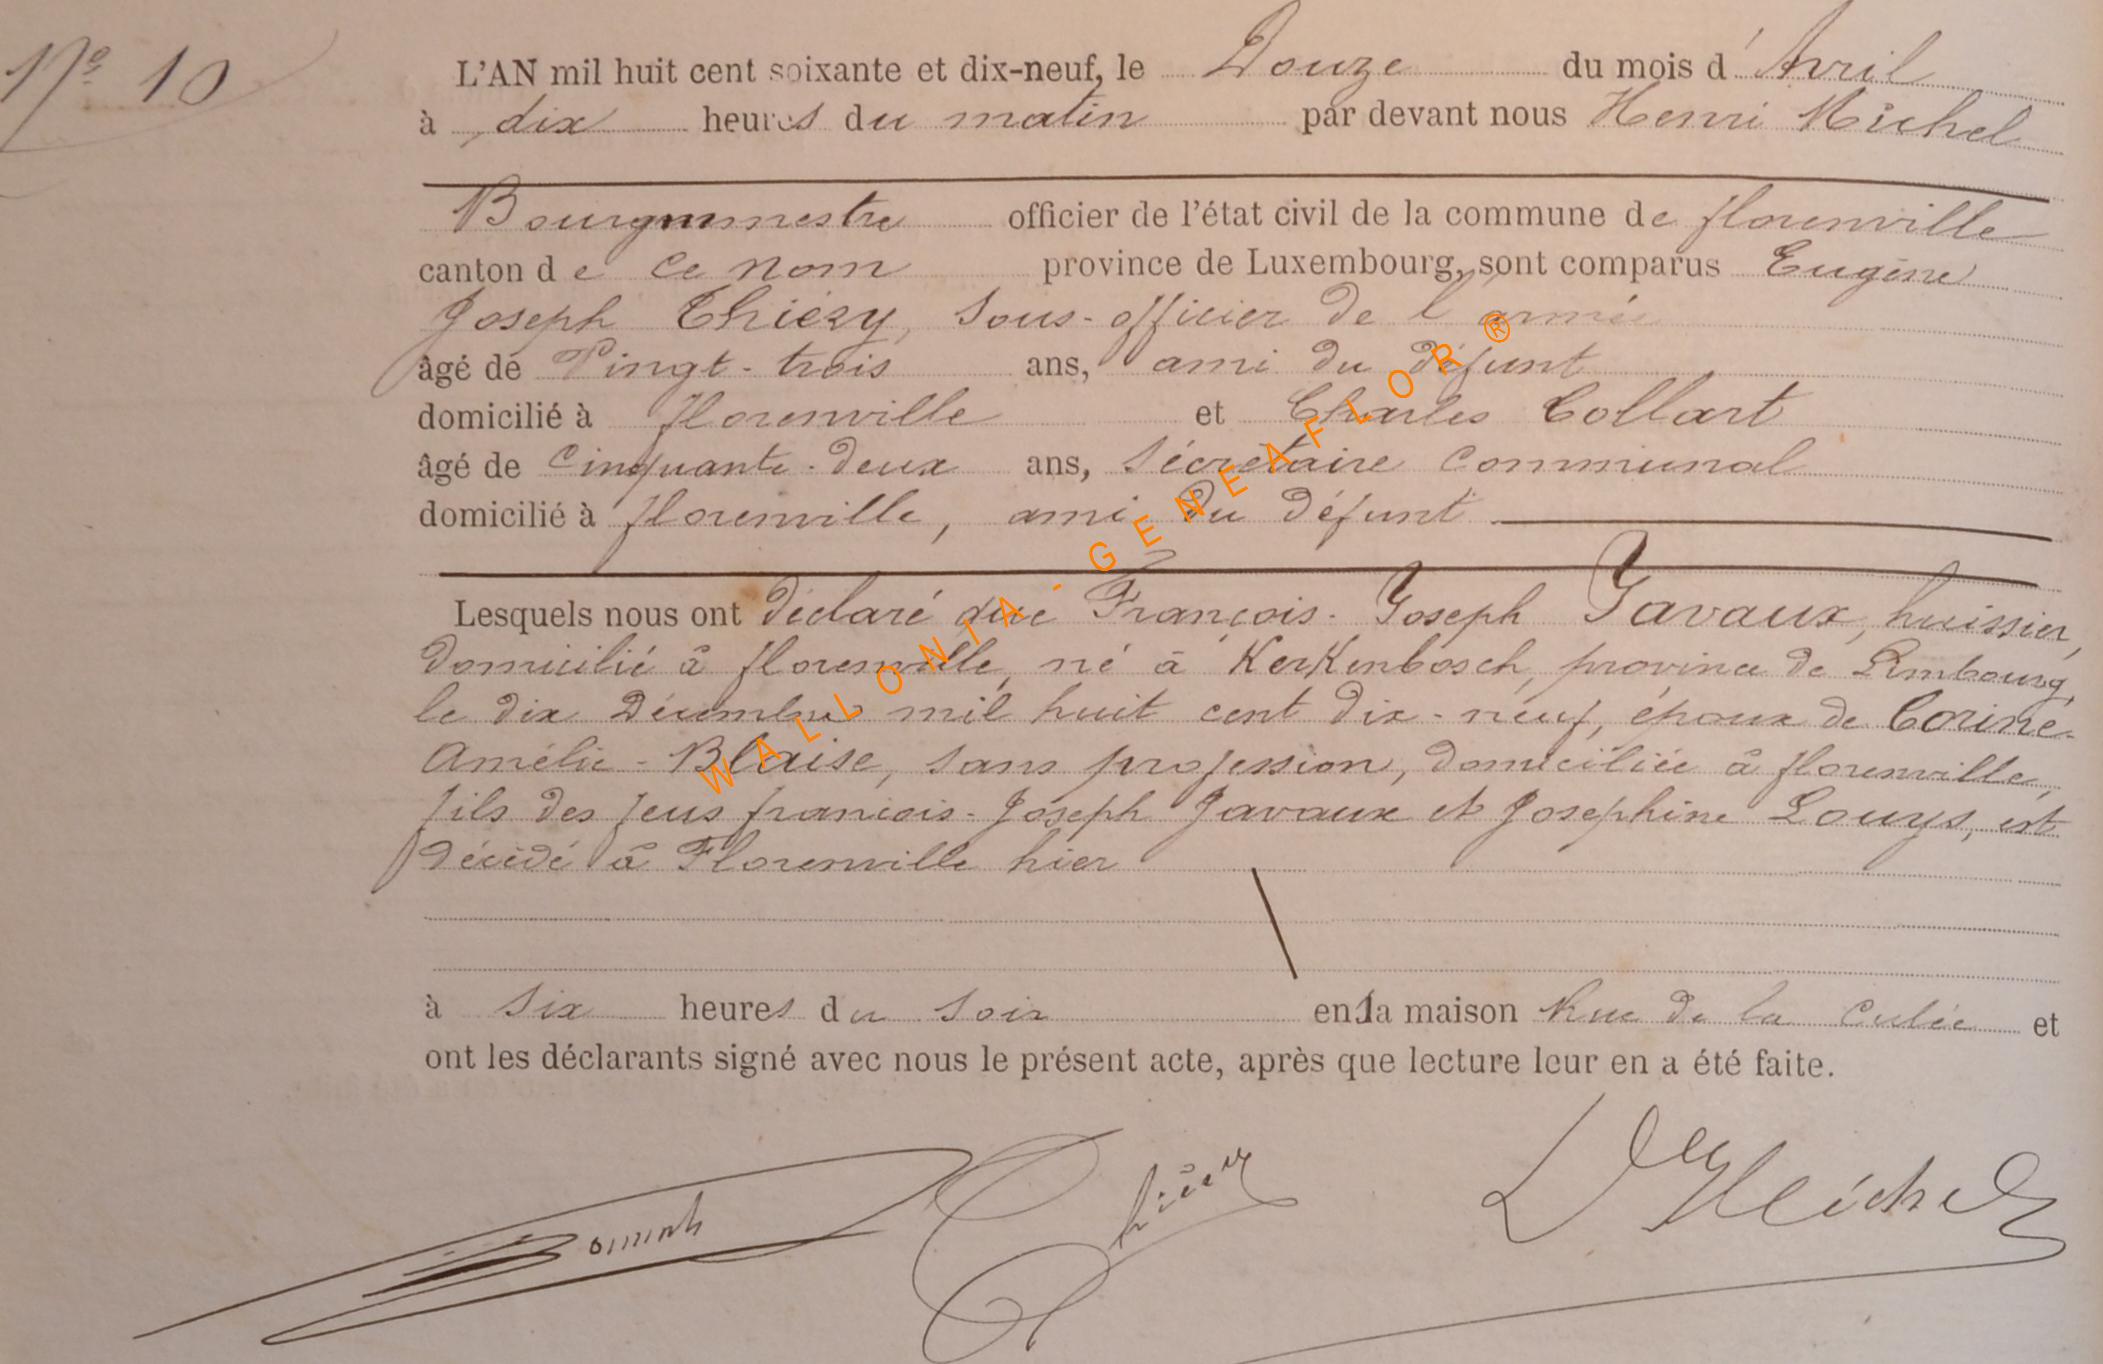 N° 10
L'AN mil huit cent soixante et dix-neuf, le Douze du mois d'Avril
à dix heures du matin par devant nous Henri Michel
Bourgmestre officier de l'état civil de la commune de florenville
canton de ce nom province de Luxembourg, sont comparus Eugène
Joseph Thiéry, sous-officier de l'armée
âgé de Vingt-trois ans, ami du défunt
domicilié à florenville et Charles Collart
âgé de Cinquante-deux ans, sécrétaire communal
domicilié à florenville, ami du défunt
Lesquels nous ont déclaré que François-Joseph Javaux, huissier,
domicilié à florenville, né à KerKenbosch, province de Limbourg,
le dix Décembre mil huit cent dix-neuf, époux de Corine-
Amélie-Blaise, sans profession, domiciliée à florenville,
fils des feus francois-Joseph Javaux et Josephine Louys, est
décédé à Florenville hier
à six heures du soir en la maison Rue de la Culée et
ont les déclarants signé avec nous le présent acte, après que lecture leur en a été faite.
Michel
WALLONIA - GENEAFLOR ®